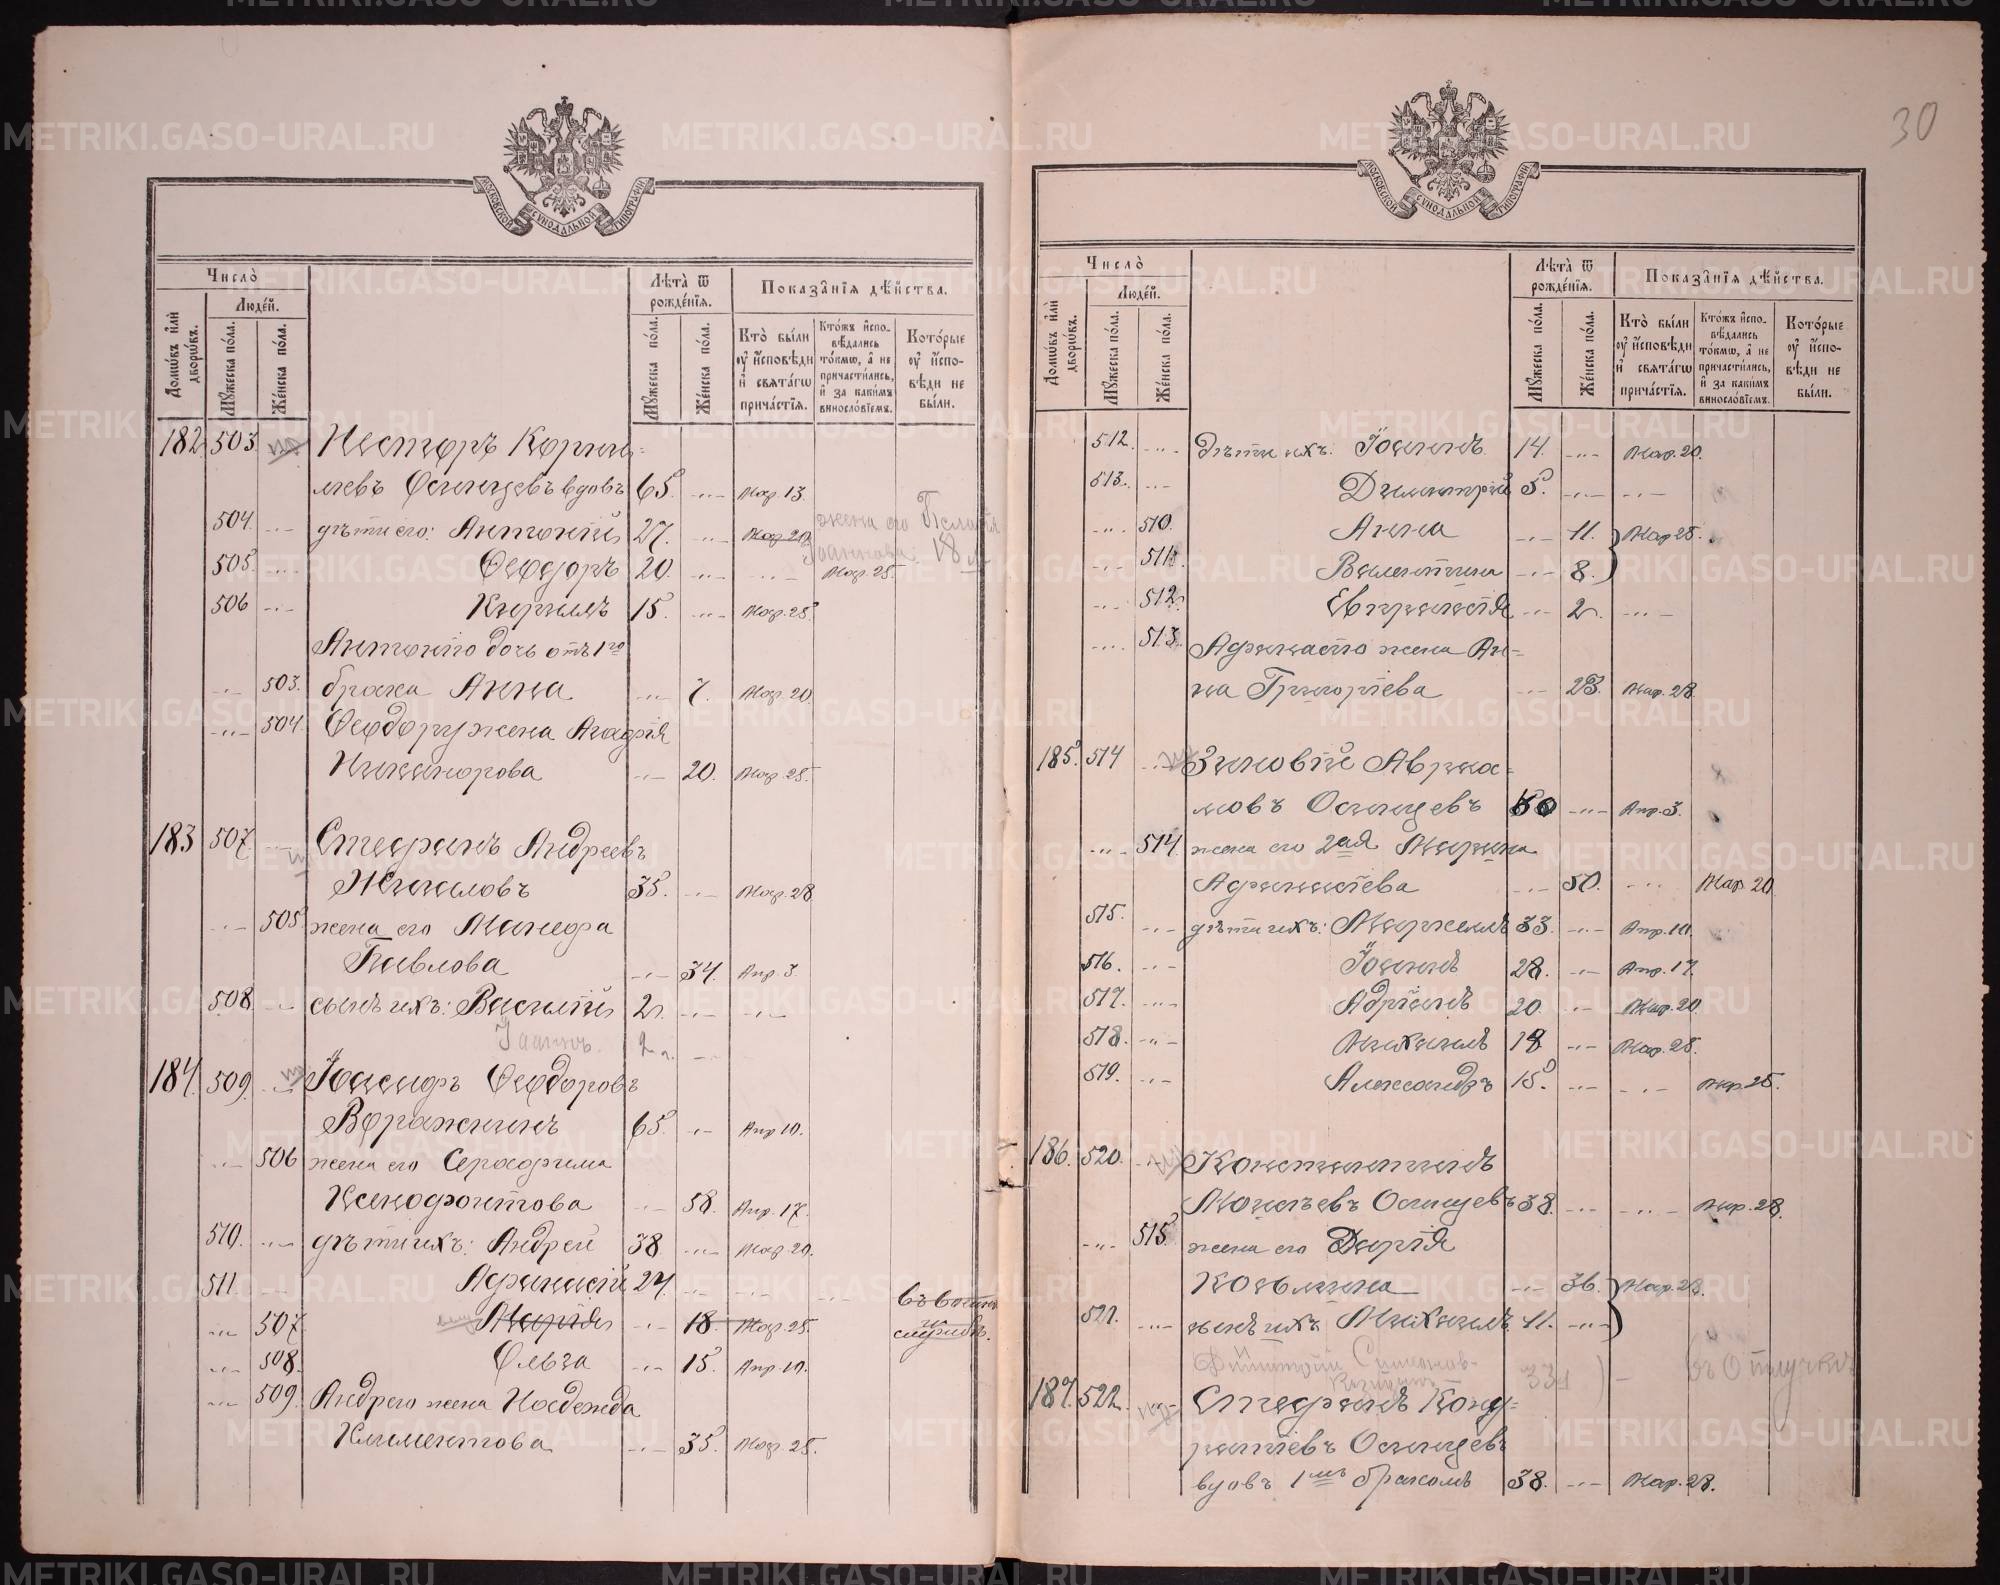 30
МОСКОВСКОЙ СѴНОДАЛЬНОЙ ТИПОГРАФІИ
Число̀
Людéй.
Лѣта̀ ѿ рождéнїѧ.
Показа̑нїѧ дѣ́йства.
Домѡ́въ и҆лѝ дворѡ́въ.
Мꙋ́жеска по́ла.
Же́нска по́ла.
Мꙋ́жеска по́ла.
Же́нска по́ла.
Кто̀ бы́ли ᲂу҆ и҆сповѣди и҆ свѧта́гѡ прича́стїѧ.
Кто́жъ и҆спо- вѣ́дались то́кмѡ, а҆ не причасти́лись, и҆ за каки́мъ винослóвїемъ.
Кото́рые ᲂу҆ и҆спо- вѣди не бы́ли.
182 503 Несторъ Корни-
лiевъ Осинцевъ вдовъ 65. -"- Мар. 13
504. -"- дѣти его: Антонiй 27. -"- Мар. 20 жена его Пелагiя
Iоаннова 18 л
505. -"- Ѳеодоръ 20. -"- -"- Мар. 25.
506 -"- Кириллъ 15. -"- Мар. 25.
Антонiю дочь отъ 1го
-"- 503. брака Анна -"- 7. Мар. 20
-"- 504. Ѳеодору жена Агафiя
Никанорова -"- 20. Мар. 25.
183 507 -"- Стефанъ Андреевъ
35. -"- Мар. 28
-"- 505. жена его Манефа
Павлова -"- 34. Апр. 3.
508. -"- сынъ ихъ: Василiй 2. -"- -"-
Iоаннъ. 2 л. -"-
184. 509. -"- Iосифъ Ѳеодоровъ
Воражнинъ 65. -"- Апр. 10.
-"- 506 жена его Серафима
Ксенофонтова -"- 58. Апр. 17.
510. -"- дѣти ихъ: Андрей 38. -"- Мар. 20.
511. -"- Афанасiй 27. -"- -"- -"- въ военн.
-"- 507. Марiя -"- 18. Мар. 25. службѣ.
-"- 508. Ольга -"- 15. Апр. 10.
-"- 509. Андрею жена Надежда
Климентова -"- 35. Мар. 25.
Число̀
Людéй.
Лѣта̀ ѿ рождéнїѧ.
Показа̑нїѧ дѣ́йства.
МОСКОВСКОЙ СѴНОДАЛЬНОЙ ТИПОГРАФІИ
Домѡ́въ и҆лѝ дворѡ́въ.
Мꙋ́жеска по́ла.
Же́нска по́ла.
Мꙋ́жеска по́ла.
Же́нска по́ла.
Кто̀ бы́ли ᲂу҆ и҆сповѣди и҆ свѧта́гѡ прича́стїѧ.
Кто́жъ и҆спо- вѣ́дались то́кмѡ, а҆ не причасти́лись, и҆ за каки́мъ винослóвїемъ.
Кото́рые ᲂу҆ и҆спо- вѣди не бы́ли.
512. -"- Дѣти ихъ: Iоаннъ 14. -"- Мар. 20.
513. -"- Димитрiй 5. -"- -"-
-"- 510. Анна -"- 11. Мар. 25.
-"- 511. Валентина -"- 8.
-"- 512. Евпраксiя -"- 2. -"-
-"- 513. Афанасiю жена Ан-
на Григорiева -"- 23. Мар. 28
185. 514 -"- Зиновiй Авраа-
мовъ Осинцевъ 60 -"- Апр. 3.
-"- 514. жена его 2ая Марина
Афанасiева -"- 50. -"- Мар. 20
515. -"- дѣти ихъ: Маркеллъ 33. -"- Апр. 10.
516. -"- Iоаннъ 28. -"- Апр. 17.
517. -"- Адрiанъ 20. -"- Мар. 20
518. -"- Михаилъ 18 -"- Мар. 25.
519. -"- Александръ 15. -"- -"- Мар. 25.
186. 520. -"- Константинъ
Моисеевъ Осинцевъ 38. -"- -"- Мар. 28.
-"- 515. жена его Дарiя
Козьмина -"- 36. Мар. 28.
521. -"- сынъ ихъ Михаилъ 11. -"-
Симеонов- 33 - въ отлучкѣ
187. 522. -"- Стефанъ Конд-
ратiевъ Осинцевъ
вдовъ 1мъ бракомъ 38. -"- Мар. 28.
METRIKI.GASO-URAL.RU